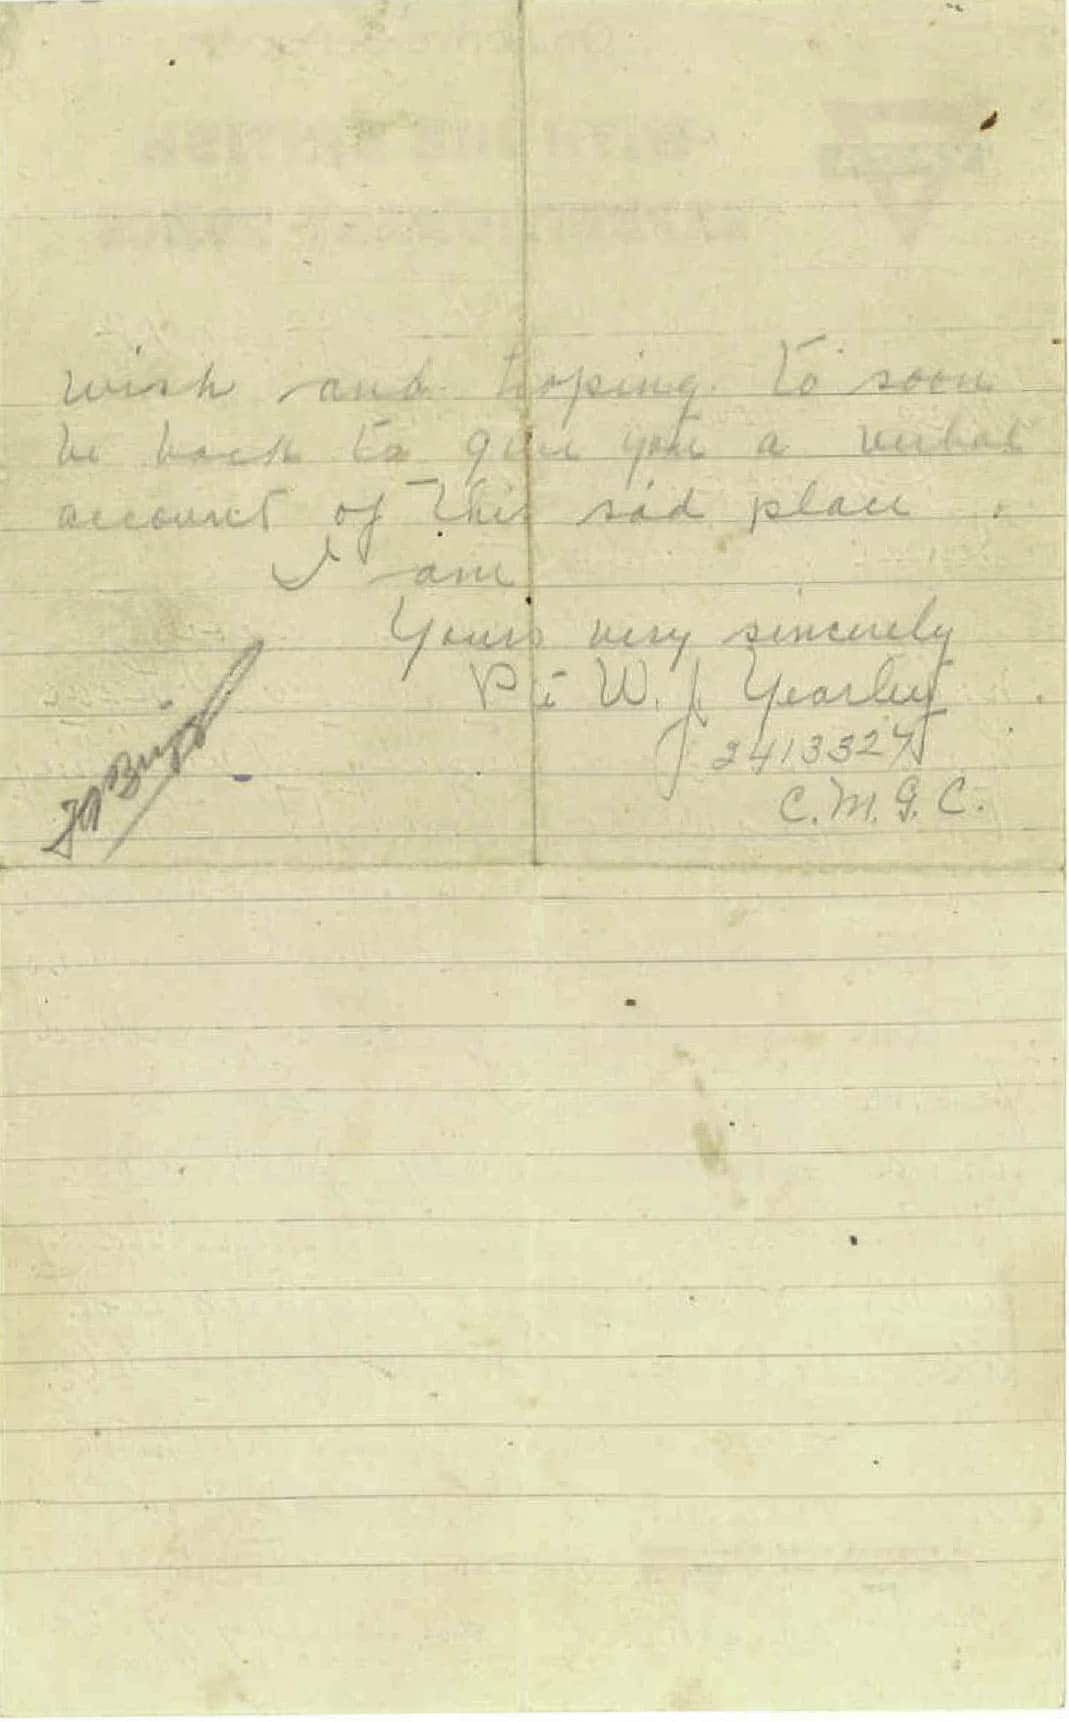 wish and hoping to soon
be back to give you a verbal
account of this sad place.
I am
Yours very sincerely
Pte W. J. Yearley
2413327
C.M.G.C.